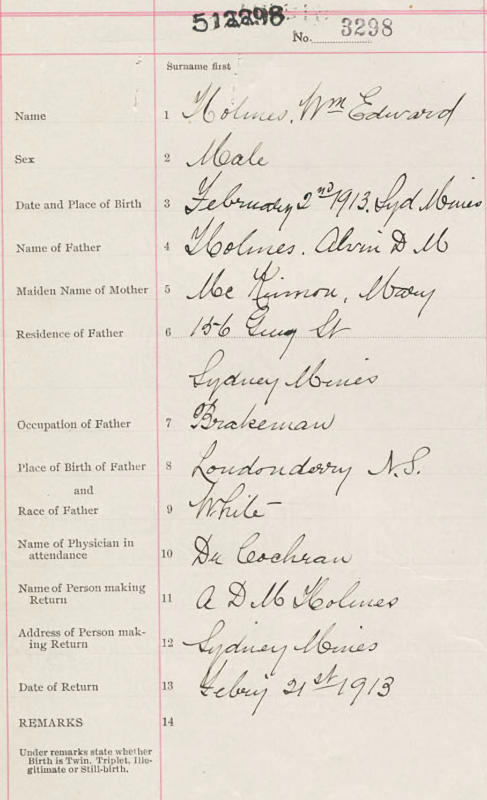 512298
No. 3298
Surname first
Name 1 Holmes, Wm Edward
Sex 2 Male
Date and Place of Birth 3 February 2nd 1913. Syd Mines
Name of Father 4 Holmes. Alvin D M
Maiden Name of Mother 5 Mc Kinnon, Mary
Residence of Father 6 156 St
Sydney Mines
Occupation of Father 7 Brakeman
Place of Birth of Father 8 Londonderry N.S.
and
Race of Father 9 White
Name of Physician in
attendance 10 Dr Cochran
Name of Person making
Return 11 A D M Holmes
Address of Person mak-
ing Return 12 Sydney Mines
Date of Return 13 Febry 21st 1913
REMARKS 14
Under remarks state whether
Birth is Twin, Triplet, Ille-
gitimate or Still-birth.